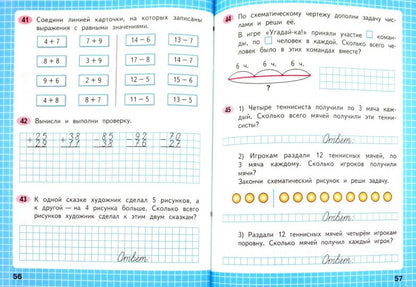 41 Соедини линией карточки, на которых записаны
выражения с равными значениями.
4 + 7 7 + 9 14 – 6 13 – 7
8 + 8 3 + 9 12 – 6 15 – 8
9 + 6 2 + 9 13 – 5 14 – 5
4 + 8 8 + 7 11 – 5 15 – 6
42 Вычисли и выполни проверку.
+25 +38 –85 –92 –70
29 77 38 76 27
43 К одной сказке художник сделал 5 рисунков, а
к другой — на 4 рисунка больше. Сколько всего
рисунков художник сделал к этим двум сказкам?
Ответ:
56
44 По схематическому чертежу дополни задачу числами
и реши её.
В игре «Угадай-ка!» приняли участие команды,
по человек в каждой. Сколько всего человек
было в этих командах вместе?
6 ч. 6 ч. 6 ч.
?
45 1) Четыре теннисиста получили по 3 мяча каждый.
Сколько мячей получили эти теннисисты?
Ответ:
2) Игрокам раздали 12 теннисных мячей, по
3 мяча каждому. Сколько игроков получили
мячи?
Закончи схематический рисунок и реши задачу.
Ответ:
3) Раздали 12 теннисных мячей четырём игрокам
поровну. Сколько мячей получил каждый игрок?
Ответ:
57